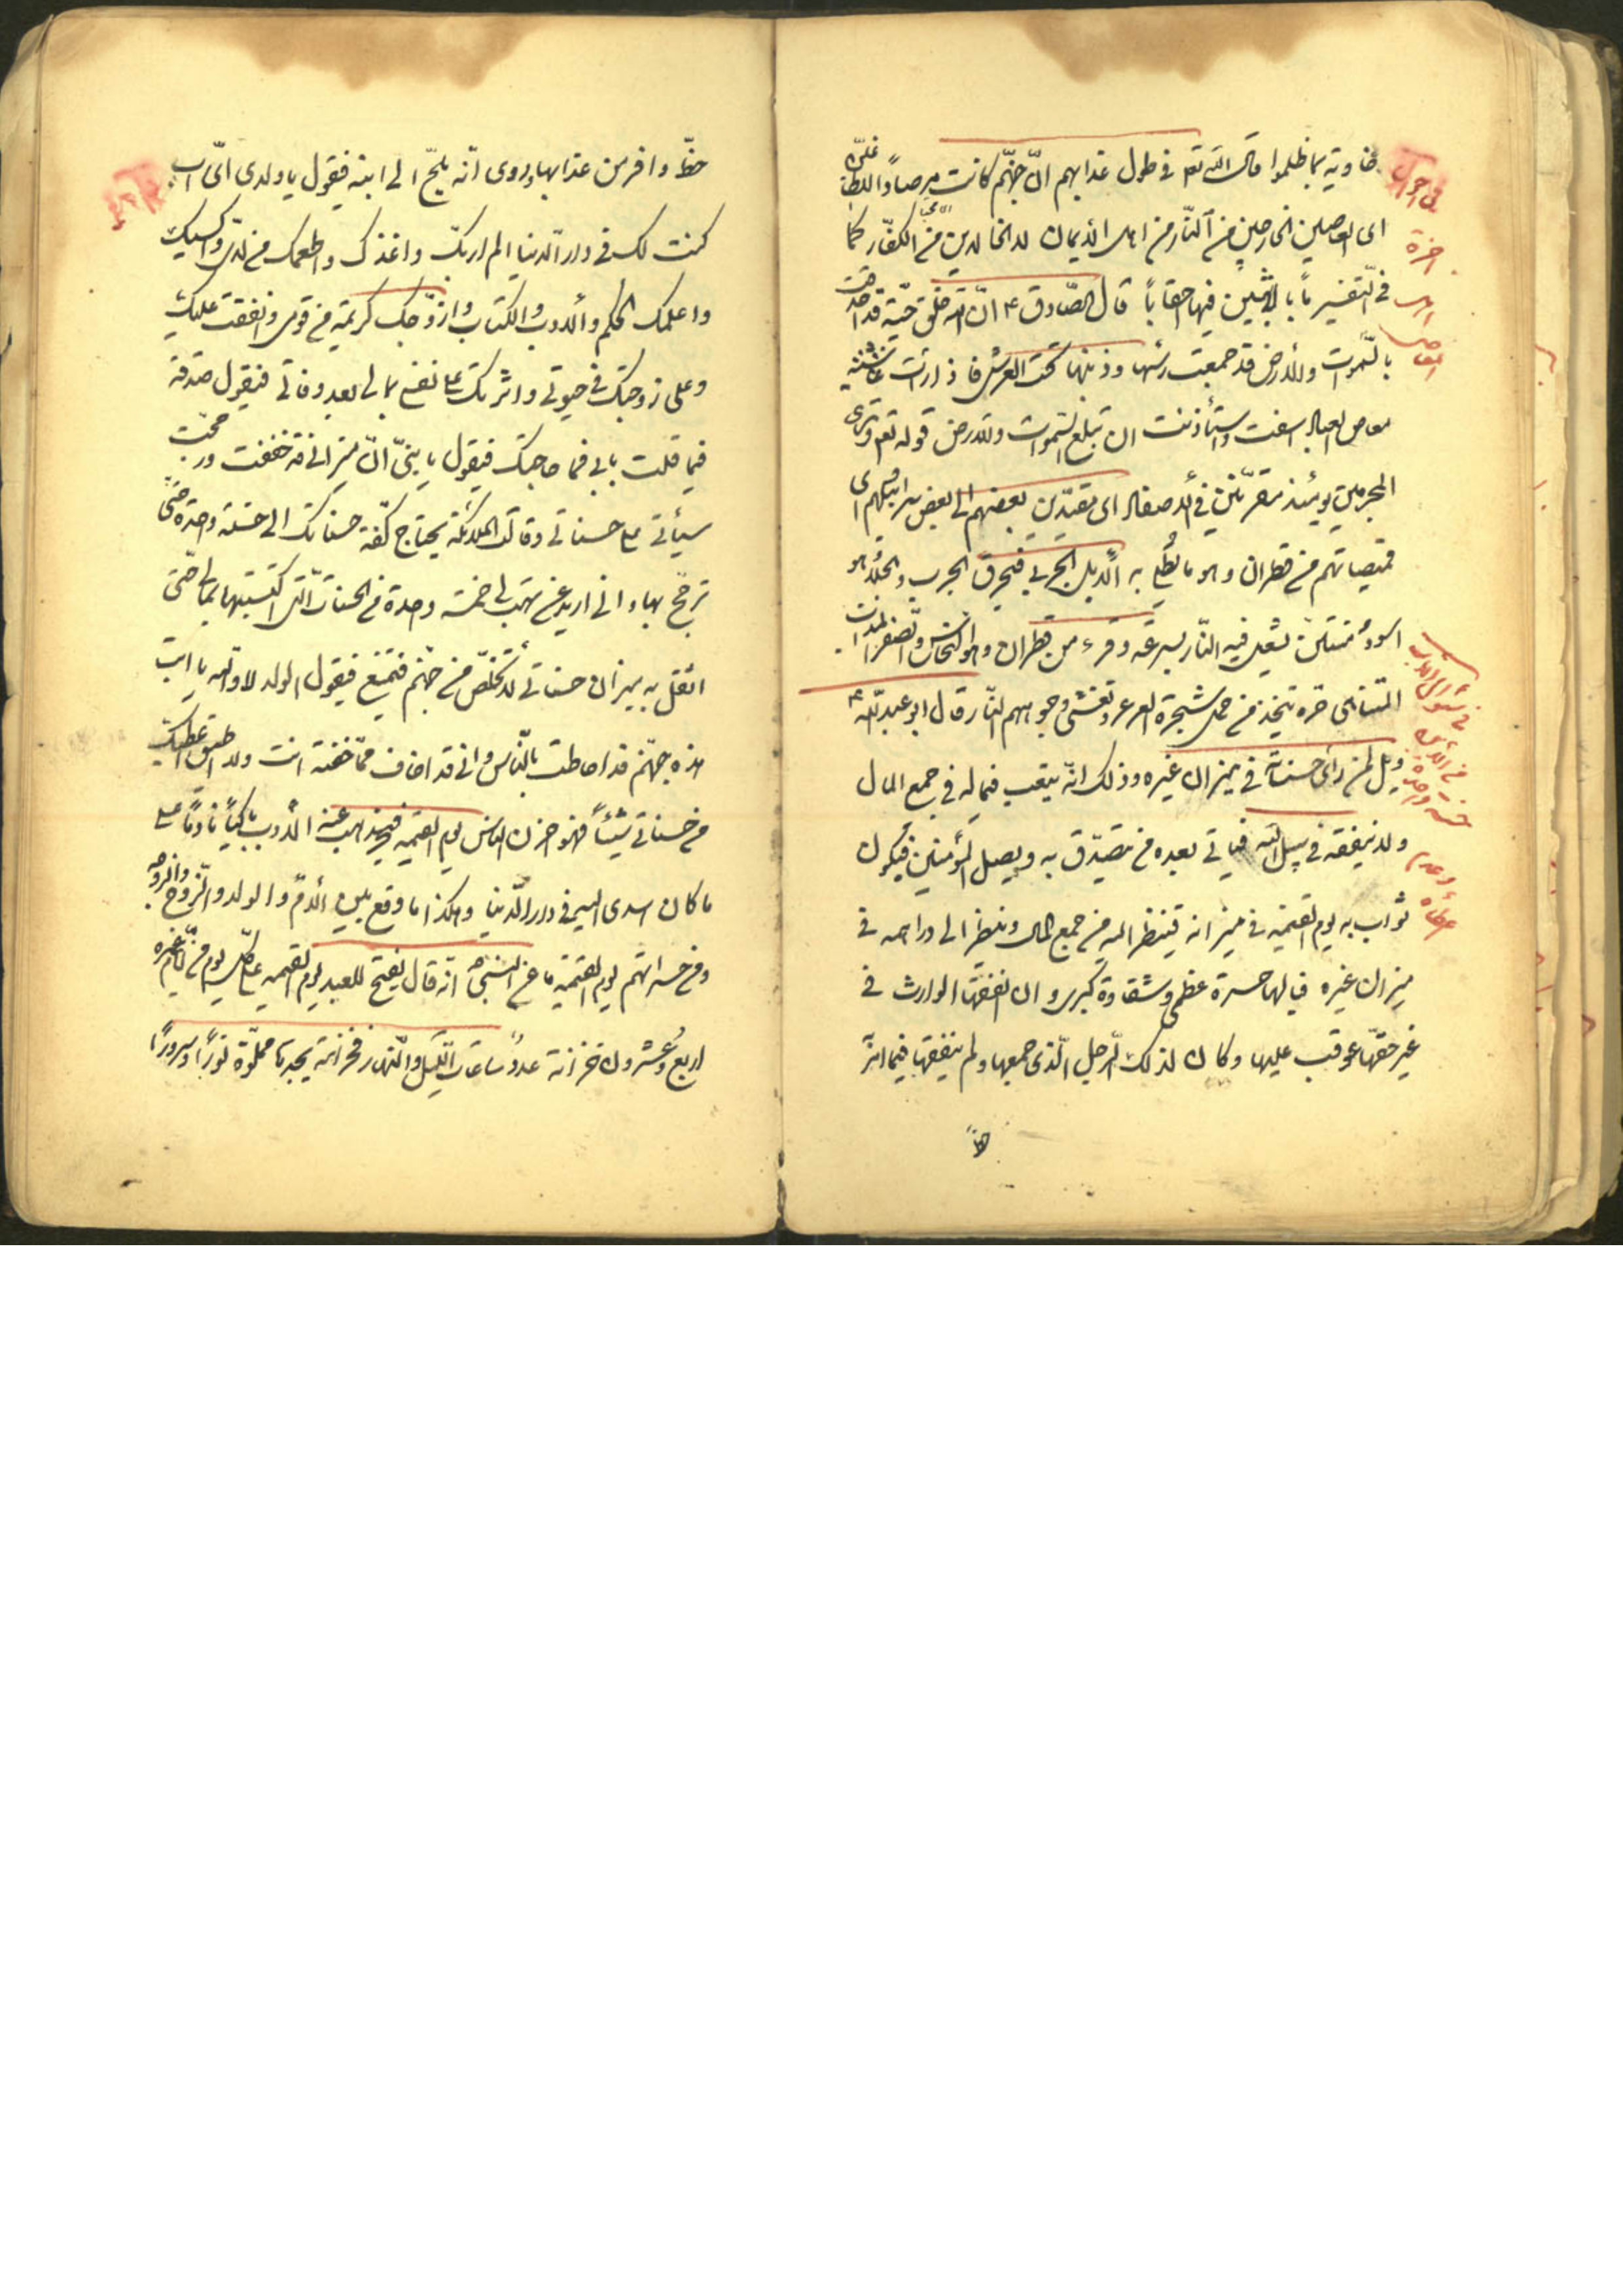 خاوية بما ظلموا قال الله تع في طول عذابهم انّ جهنّم كانت مرصاداً للطا
اى العاصين الخارجين من النّار من اهل الايمان لا الخالدين من الكفّار كما
في التفسير مآبا لابثين فيها احقاباً قال الصّادق ع انّ الله خلق حيّة قد احدقت
بالسّموات والارض قد جمعت رأسها وذنبها تحت العرش فاذا رأت
معاصى العباد اسفت واستأذنت ان تبلع السّموات والارض قوله تع وترى
المجرمين يومئذ مقرّنين في الاصفاد اى مقيّدين بعضهم الى بعض سرابيلهم اى
قميصاتهم من قطران وهو ما يُطلى به الابل الجربى فيحرق الجرب والجلد هو
اسود منتن تشعل فيه النّار بسرعة وقرء من قطران وهو النحاس والصّفر المذاب
المتناهى حرّه يتّخذ من حمل شجرة العرعر وتغشى وجوههم النّار قال ابو عبد الله ع
ويل لمن رأى حسناته في ميزان غيره وذلك انّه يتعب فماله في جمع المال
ولا ينفقه في سبيل الله فيأتي بعده من يتصدّق به ويصل المؤمنين فيكون
ثواب به يوم القيمة في ميزانه فينظر اليه من جمع المال وينظر الى دراهمه في
ميزان غيره فيا لها حسرة عظمى وشقاوة كبرى وان انفقها الوارث في
غير حقّها عوقب عليها وكان لذلك الرّجل الّذى جمعها ولم ينفقها فيما امر
حظّ
في احوال
اخرة
اهل
المعاصى
حظّ وافر من عذابها وروى انّه يلجّ الى ابنه فيقول يا ولدى اىّ اب
كنت لك في دار الدنيا الم اربّك واغذك واطعمك من لذى واكسيك
واعلّمك الحكم والادب والكتاب وازوّجك كريمة من قومى وانفقت عليك
وعلى زوجتك في حيوتى واثرتك على نفسى بمالى بعد وفاتى فيقول صدقت
فيما قلت يا ابى فما حاجتك فيقول يا بنىّ انّ ميزانى قد خففت ورجحت
سيأتى على حسناتى وقالت الملائكة يحتاج كفّة حسناتك الى حسنة واحدة حتى
ترجّح بها وانى اريد عن تهب لى حسنة واحدة من الحسنات الّتى اكتسبتها بمالى حتّى
اثقل به ميزان حسناتى لاتخلّص من جهنّم فتمنع فيقول الولد لا والله يا ابت
هذه جهنّم قد احاطت بالنّاس وانى قد اخاف ممّا خفته انت ولا اطيق اعطيك
من حسناتى شيئاً فهو احزن النّاس يوم القيمة فيذهب عنه الاب باكياً نادماً على
ما كان اسدى اليه في دار الدّنيا وهكذا ما وقع بين الامّ والولد والزّوج والزّوجة
ومن حسراتهم يوم القيمة ما عن النبىّ انّه قال يفتح للعبد يوم القيمة على كلّ يوم من ايّام عمره
اربع وعشرون خزانة عدد ساعات اللّيل والنّهار فخزانة يجدها مملوّة نوراً وسروراً